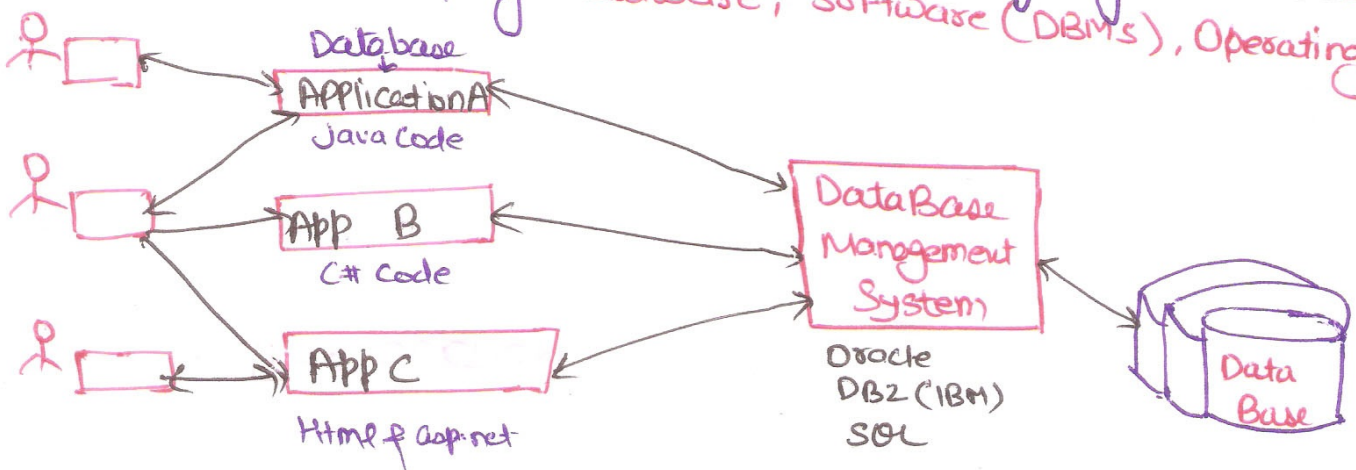 Software (DBMS), Operating
Database
Application A
Java Code
App B
C# Code
App C
Html & asp.net
DataBase
Management
System
Oracle
DB2 (IBM)
SQL
Data
Base